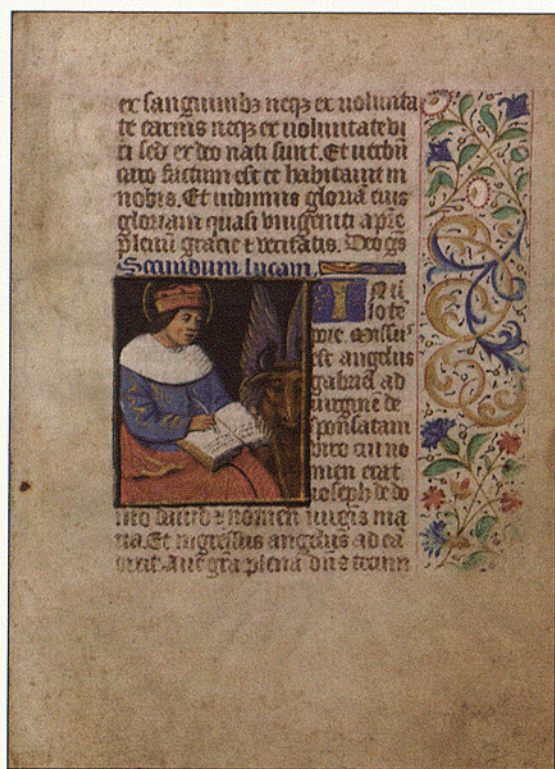 ex sanguinibꝫ neqꝫ ex uolunta
te carnis neqꝫ ex uoluntate vi
ri sed ex deo nati sunt. Et uerbū
caro factum est et habitauit in
nobis. Et uidimus gloriā eius
gloriam quasi vnigeniti a p̄re
plenū gracie et veritatis. Deo gs
Secundum lucam
In il
lo te
pore. Missus
est angelus
gabriel ad
uirginē de
sponsatam
viro cui no
men erat
ioseph de do
mo dauid et nomen uirgis ma
ria. Et ingressus angelus ad eā
dixit. Aue gr̄a plena dn̄s tecum